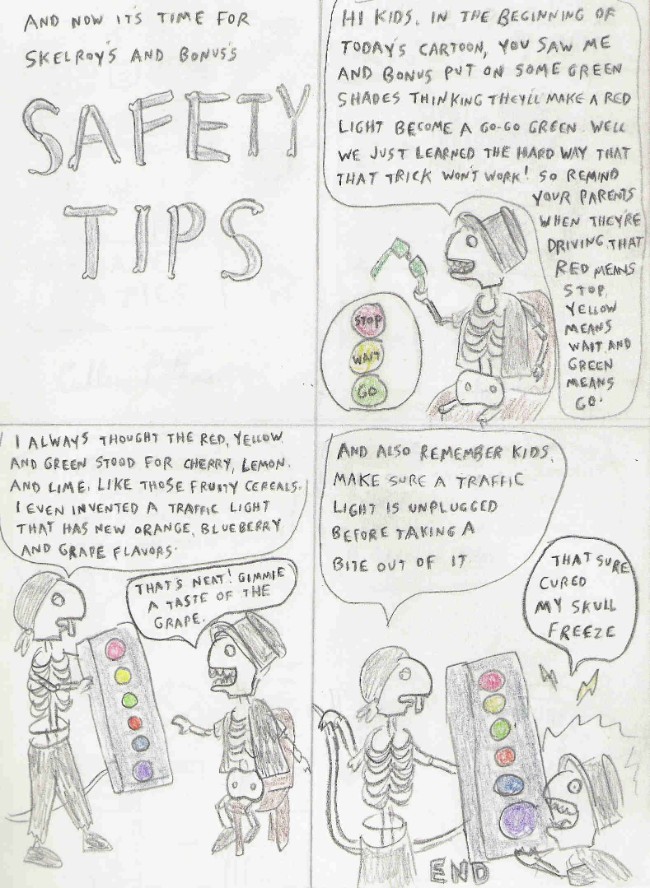 AND NOW IT'S TIME FOR
SKELROY'S AND BONUS'S
SAFETY
TIPS
HI KIDS, IN THE BEGINNING OF
TODAY'S CARTOON, YOU SAW ME
AND BONUS PUT ON SOME GREEN
SHADES THINKING THEY'LL MAKE A RED
LIGHT BECOME A GO-GO GREEN. WELL
WE JUST LEARNED THE HARD WAY THAT
THAT TRICK WON'T WORK! SO REMIND
YOUR PARENTS
WHEN THEY'RE
DRIVING THAT
RED MEANS
STOP,
YELLOW
MEANS
WAIT AND
GREEN
MEANS
GO.
STOP
WAIT
GO
I ALWAYS THOUGHT THE RED, YELLOW
AND GREEN STOOD FOR CHERRY, LEMON,
AND LIME. LIKE THOSE FRUITY CEREALS.
I EVEN INVENTED A TRAFFIC LIGHT
THAT HAS NEW ORANGE, BLUEBERRY
AND GRAPE FLAVORS.
THAT'S NEAT! GIMMIE
A TASTE OF THE
GRAPE.
AND ALSO REMEMBER KIDS,
MAKE SURE A TRAFFIC
LIGHT IS UNPLUGGED
BEFORE TAKING A
BITE OUT OF IT
THAT SURE
CURED
MY SKULL
FREEZE
END